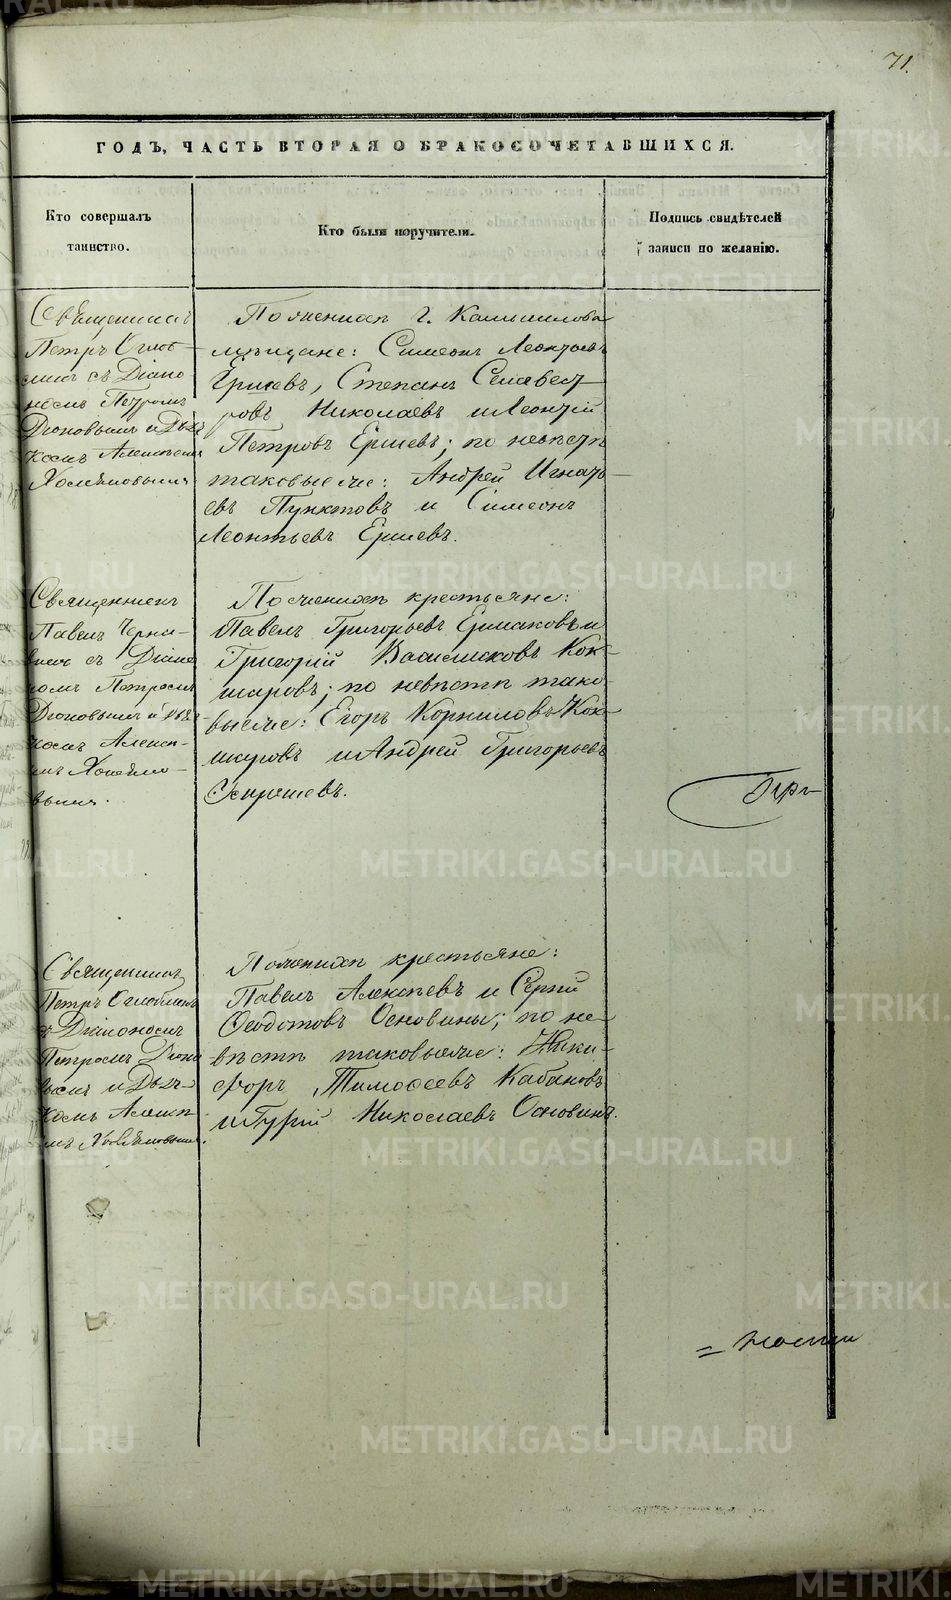 71.
ГОДЪ, ЧАСТЬ ВТОРАЯ О БРАКОСОЧЕТАВШИХСЯ.
Кто совершалъ
таинство.
Кто были поручители.
Подпись свидѣтелей
записи по желанію.
Священникъ
Петръ Оглоб
линъ съ Діако
номъ Петромъ
Діоновымъ и Дьяч
комъ Алексѣемъ
По женихѣ г. Камышлова
мѣщане: Симеонъ Леонтьевъ
Ершевъ, Степанъ Селивест
ровъ Николаевъ и Леонтій
Петровъ Ершевъ; по невѣстѣ
таковые же: Андрей Игнать
евъ Пунктовъ и Симеонъ
Леонтьевъ Ершевъ.
Священникъ
Павелъ Черна-
винъ съ Діако
номъ Петромъ
Діоновымъ и Дьяч
комъ Алексѣ-
емъ
вымъ.
По женихѣ крестьяне:
Павелъ Григорьевъ Ермаковъ и
Григорій Васильевъ Кок-
шаровъ; по невѣстѣ тако
вые же: Егоръ Корниловъ Кок-
шаровъ и Андрей Григорьевъ
Священникъ
Петръ Оглоблинъ
съ Діакономъ
Петромъ Діоно
вымъ и Дьяч-
комъ Алексѣ
емъ
По женихѣ крестьяне:
Павелъ Алексѣевъ и Сергій
Ѳеодотовъ Основины; по не-
вѣстѣ таковые же: Ники-
форъ Тимофеевъ Кабановъ
и Гурій Николаевъ Основинъ.
METRIKI.GASO-URAL.RU